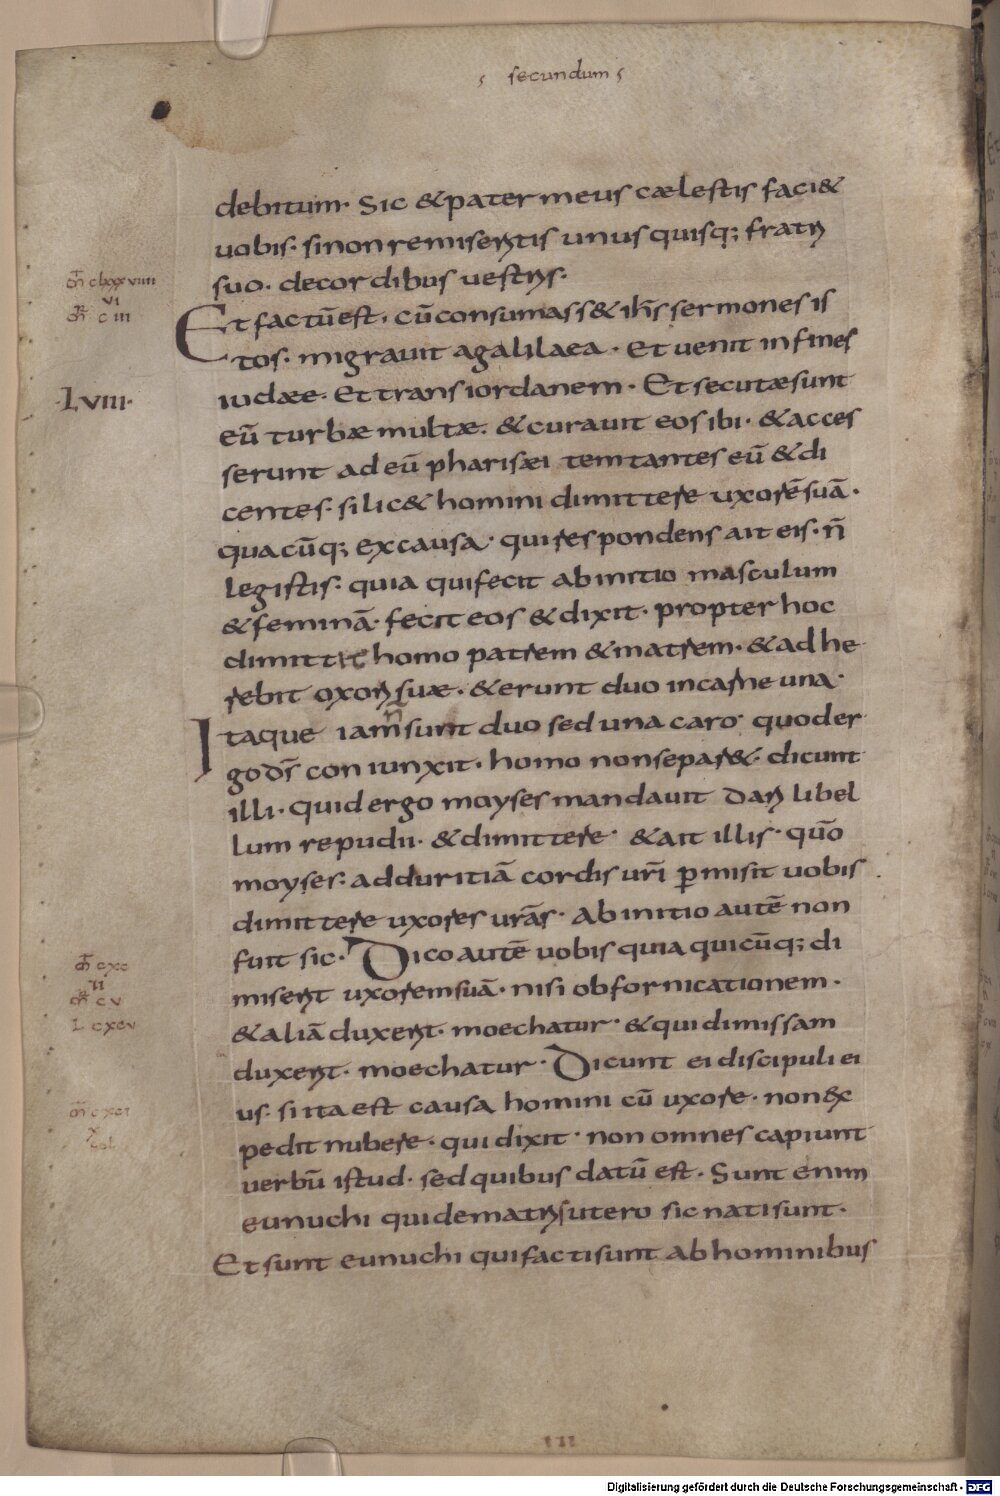 secundum
debitum· Sic & pater meus cælestis faci&
uobis· si non remiseritis unus quisq; fratri
suo· de cordibus uestris·
Et factū est· cū consumass& ih̄s sermones is
tos· migrauit a galilaea· Et uenit in fines
iudæe· Et trans iordanem· Et secutæ sunt
eū turbæ multæ· & curauit eos ibi· & acces
serunt ad eū pharisæi temtantes eū & di
centes· si lic& homini dimittere uxorē suā·
quacūq; ex causa· qui respondens ait eis· n̄
legistis· quia qui fecit ab initio masculum
& feminā· fecit eos & dixit· propter hoc
dimittit homo patrem & matrem· & adhe
rebit oxori suæ· & erunt duo in carne una·
Itaque iam n̄ sunt duo sed una caro· quod er
go ds̄ coniunxit· homo non separ&· dicunt
illi· quid ergo moyses mandauit dari libel
lum repudii· & dimittere· & ait illis· quō
moyses· ad duritiā cordis ur̄i p̄misit uobis
dimittere uxores urās· Ab initio autē non
fuit sic· Dico autē uobis quia quicūq; di
miserit uxorem suā· nisi ob fornicationem·
& aliā duxerit· moechatur· & qui dimissam
duxerit· moechatur· Dicunt ei discipuli ei
us· si ita est causa homini cū uxore· non ex
pedit nubere· qui dixit· non omnes capiunt
uerbū istud· sed quibus datū est· Sunt enim
eunuchi qui de matris utero sic nati sunt·
Et sunt eunuchi qui facti sunt ab hominibus
m̄ clxxxviiii
vi
m̄r ciii
·Lviii·
m̄ cxc
ii
m̄r cv
L cxcv
m̄ cxci
x
sol
Digitalisierung gefördert durch die Deutsche Forschungsgemeinschaft - DFG